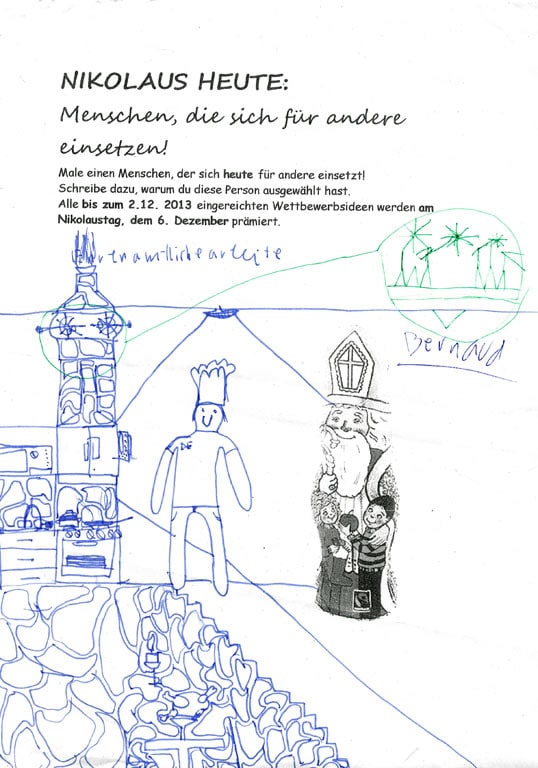 NIKOLAUS HEUTE:
Menschen, die sich für andere
einsetzen!
Male einen Menschen, der sich heute für andere einsetzt!
Schreibe dazu, warum du diese Person ausgewählt hast.
Alle bis zum 2.12. 2013 eingereichten Wettbewerbsideen werden am
Nikolaustag, dem 6. Dezember prämiert.
Bernaud
DE